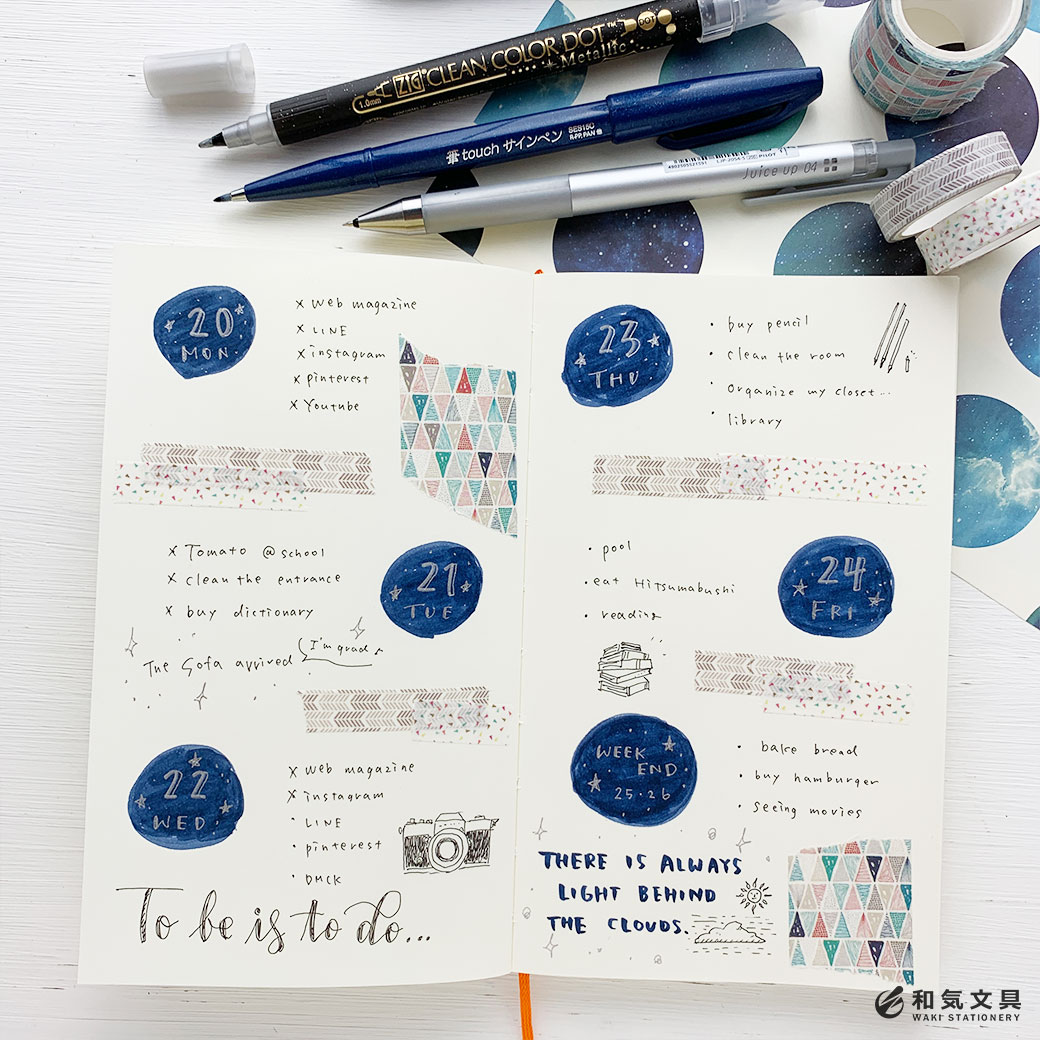 ZIG CLEAN COLOR DOT™
+ Metallic
1.0mm
DOT
touch サインペン
SES15C
Juice up 04
20
MON
× Web magazine
× LINE
× instagram
× pinterest
× Youtube
× Tomato @school
× clean the entrance
× buy dictionary
The Sofa arrived
I'm grad♪
21
TUE
22
WED
× Web magazine
× instagram
· LINE
· pinterest
· DMCK
To be is to do...
23
THU
· buy pencil
· clean the room
· organize my closet...
· library
· pool
· eat Hitsumabushi
· reading
24
FRI
WEEK
END
25·26
· bake bread
· buy hamburger
· seeing movies
THERE IS ALWAYS
LIGHT BEHIND
THE CLOUDS.
和気文具
WAKI STATIONERY